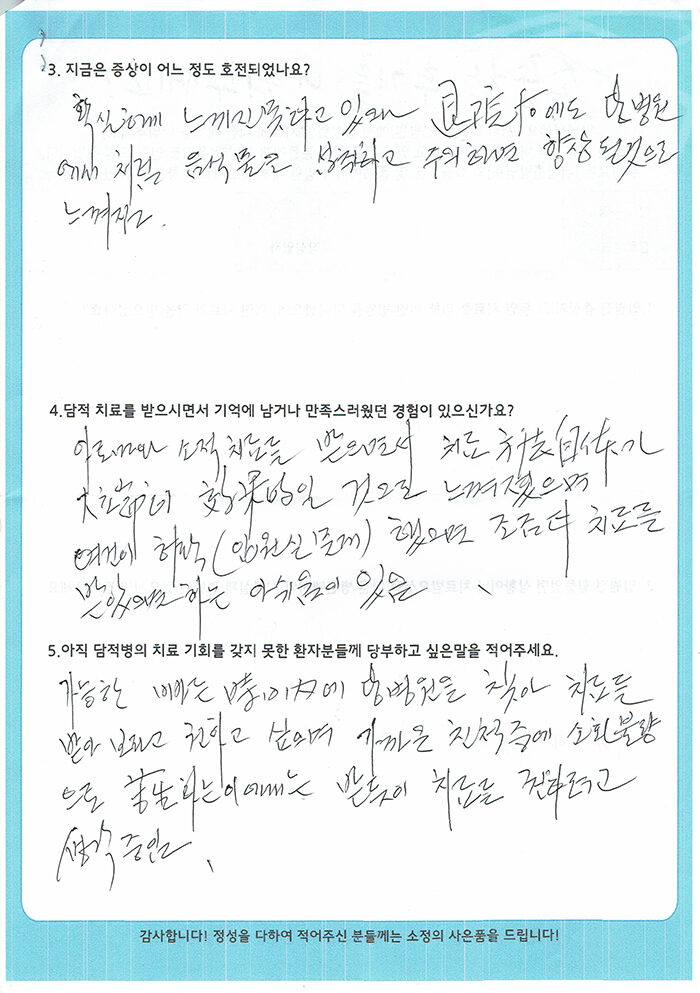 3. 지금은 증상이 어느 정도 호전되었나요?
확실하게 느끼진 못하고 있으나 退院후에도 본병원
에서 처럼 음식물도 섭취하고 주의하면 향상 될것으로
느껴지고
4.담적 치료를 받으시면서 기억에 남거나 만족스러웠던 경험이 있으신가요?
소적 치료를 받으면서 치료 方法自体가
것으로 느껴졌으며
여건이 허락(입원실 문제) 했으면 조금 더 치료를
받았으면 하는 아쉬움이 있음
5.아직 담적병의 치료 기회를 갖지 못한 환자분들께 당부하고 싶은말을 적어주세요.
가능한 빠른 에 본병원을 찾아 치료를
받아 보라고 권하고 싶으며 가까운 친척중에 소화불량
으로 苦生하는 이에게는 반듯이 치료를 권하려고
생각 중인
감사합니다! 정성을 다하여 적어주신 분들께는 소정의 사은품을 드립니다!